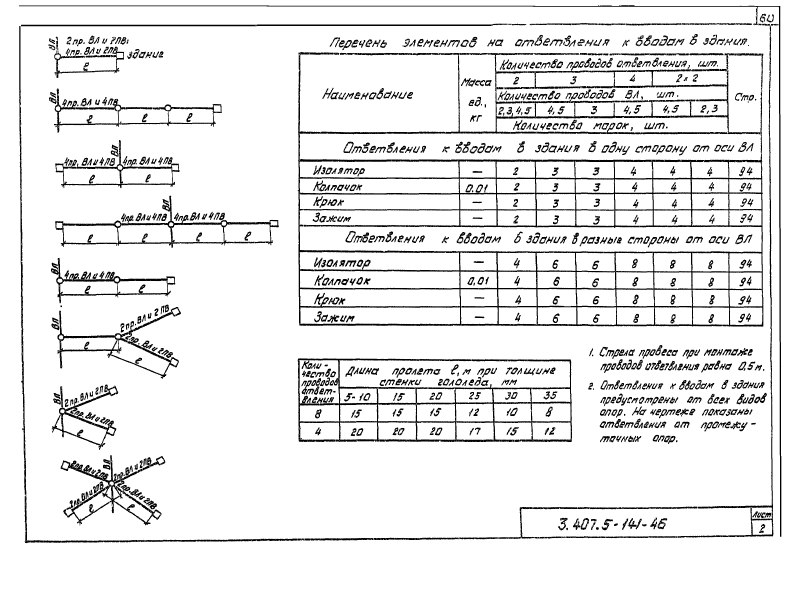 60
Перечень элементов на ответвления к вводам в здания.
Наименование
Масса ед., кг
Количество проводов ответвления, шт.
2 3 4 2×2
Количество проводов ВЛ, шт.
2,3,4,5 4,5 3 4,5 4,5 2,3
Количество марок, шт.
Стр.
Ответвления к вводам в здания в одну сторону от оси ВЛ
Изолятор — 2 3 3 4 4 4 94
Колпачок 0.01 2 3 3 4 4 4 94
Крюк — 2 3 3 4 4 4 94
Зажим — 2 3 3 4 4 4 94
Ответвления к вводам в здания в разные стороны от оси ВЛ
Изолятор — 4 6 6 8 8 8 94
Колпачок 0,01 4 6 6 8 8 8 94
Крюк — 4 6 6 8 8 8 94
Зажим — 4 6 6 8 8 8 94
ВЛ
2пр. ВЛ и 2ПВ;
4пр. ВЛ и 2ПВ
здание
ℓ
ВЛ
4пр. ВЛ и 4ПВ
ℓ ℓ ℓ
ВЛ
4пр. ВЛ и 4ПВ 4пр. ВЛ и 4ПВ
ℓ ℓ
ВЛ
4пр. ВЛ и 4ПВ 4пр. ВЛ и 4ПВ
ℓ ℓ ℓ ℓ
ВЛ
4пр. ВЛ и 4ПВ
ℓ ℓ
ВЛ
2пр. ВЛ и 2ПВ
2пр. ВЛ и 2ПВ
ℓ ℓ
ВЛ
2пр. ВЛ и 2ПВ
2пр. ВЛ и 2ПВ
ℓ
ВЛ
2пр. ВЛ и 2ПВ 2пр. ВЛ и 2ПВ
2пр. ВЛ и 2ПВ 2пр. ВЛ и 2ПВ
ℓ ℓ
Количество проводов ответвления
Длина пролета ℓ, м при толщине
стенки гололеда, мм
5-10 15 20 25 30 35
8 15 15 15 12 10 8
4 20 20 20 17 15 12
1. Стрела провеса при монтаже
проводов ответвления равна 0,5 м.
2. Ответвления к вводам в здания
предусмотрены от всех видов
опор. На чертеже показаны
ответвления от промежу-
точных опор.
3.407.5-141-46
Лист
2